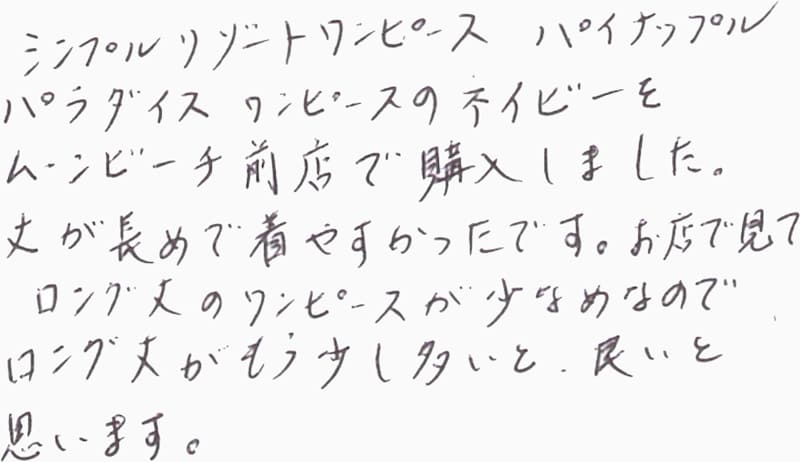 シンプルリゾートワンピース パイナップル
パラダイス ワンピースのネイビーを
ムーンビーチ前店で購入しました。
丈が長めで着やすかったです。お店で見て
ロング丈のワンピースが少なめなので
ロング丈がもう少し多いと、良いと
思います。